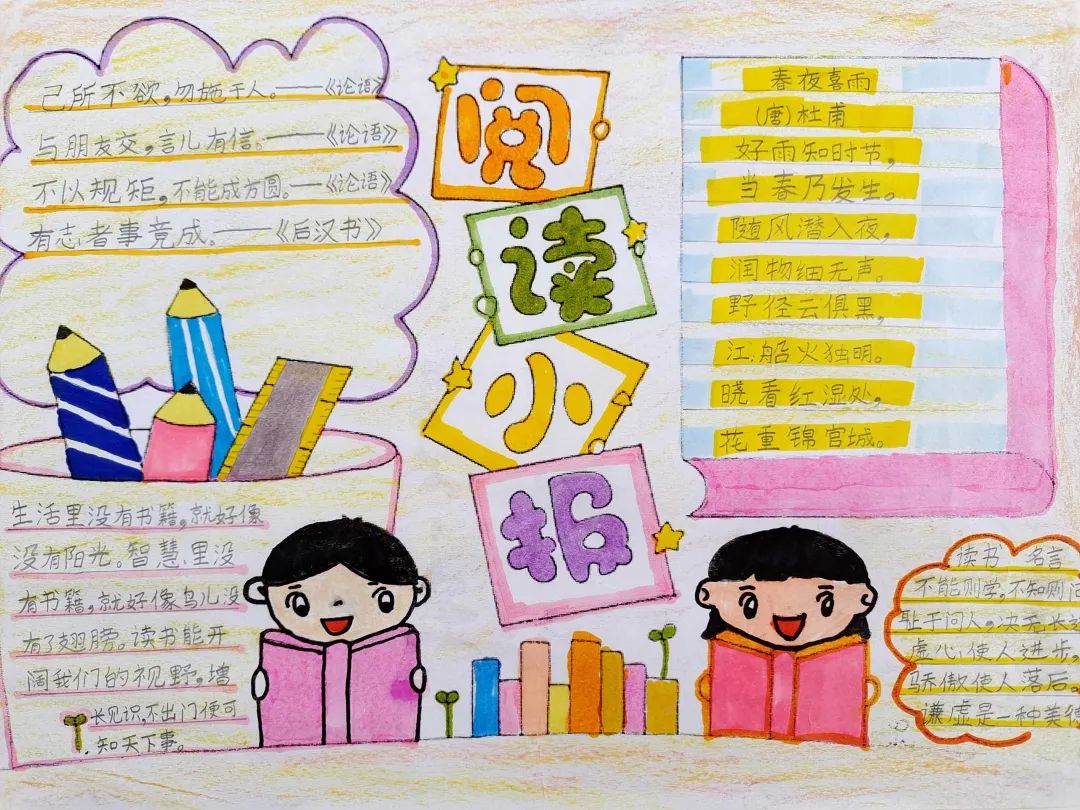 己所不欲,勿施于人。——《论语》
与朋友交,言儿有信。——《论语》
不以规矩,不能成方圆。——《论语》
有志者事竟成。——《后汉书》
阅
读
小
报
春夜喜雨
(唐)杜甫
好雨知时节,
当春乃发生。
随风潜入夜,
润物细无声。
野径云俱黑,
江船火独明。
晓看红湿处,
花重锦官城。
生活里没有书籍,就好像
没有阳光。智慧里没
有书籍,就好像鸟儿没
有了翅膀。读书能开
阔我们的视野。增
长见识,不出门便可
知天下事。
读书 名言
不能则学,不知则问
耻于问人,决无长
虚心使人进步,
骄傲使人落后。
谦虚是一种美德